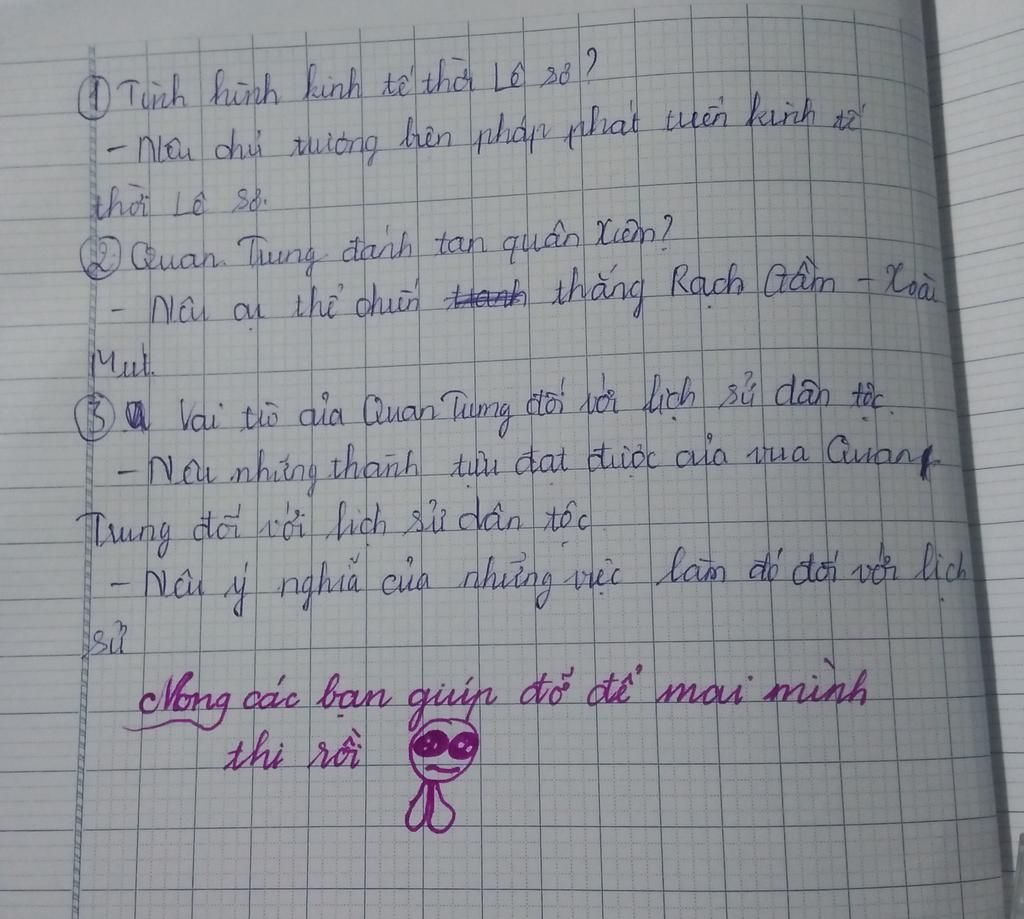 ① Tình hình kinh tế thời Lê sơ?
- Nêu chủ trương biện pháp phát triển kinh tế
thời Lê Sơ.
② Quan Trung đánh tan quân Xiêm?
- Nêu cụ thể chiến thắng Rạch Gầm - Xoài
Mút.
③ Vai trò của Quan Trung đối với lịch sử dân tộc.
- Nêu những thành tựu đạt được của vua Quang
Trung đối với lịch sử dân tộc
- Nêu ý nghĩa của những việc làm đó đối với lịch
sử
Mong các bạn giúp đỡ để mai mình
thi rồi